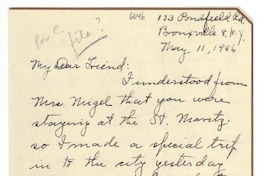 6046
123 Pondfield Rd.
for C. file?
Bronxville 8, N.Y.
May 11, 1946
My Dear Friend:
I understood from
Mrs. Nigel that you were
staying at the St. Moritz
so I made a special trip
in to the city yesterday